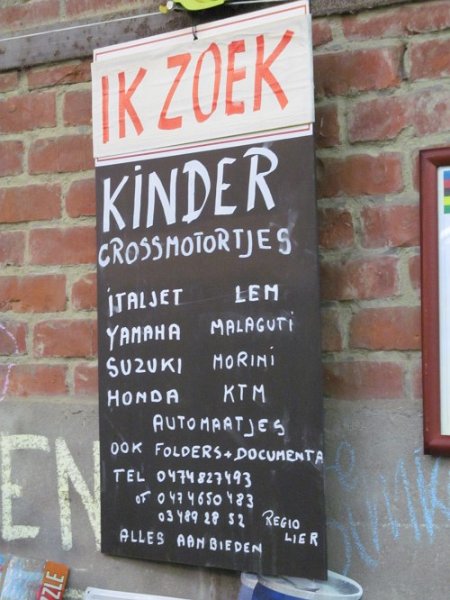 IK ZOEK
KINDER
CROSSMOTORTJES
ITALJET LEM
YAMAHA MALAGUTI
SUZUKI MORINI
HONDA KTM
AUTOMAATJES
OOK FOLDERS+DOCUMENTA
TEL 0474827493
OT 0474650483
03 489 28 52 REGIO
LIER
ALLES AANBIEDEN
EN
ZZLE